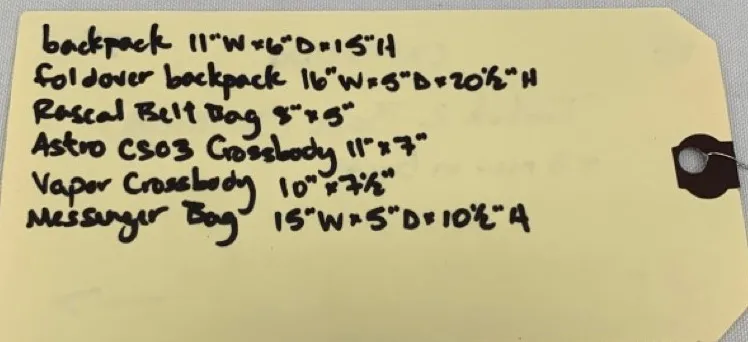 backpack 11"W x 6"D x 15"H
foldover backpack 16"W x 5"D x 20½"H
Rascal Belt Bag 8" x 5"
Astro CS03 Crossbody 11" x 7"
Vapor Crossbody 10" x 7½"
Messenger Bag 15"W x 5"D x 10½"H